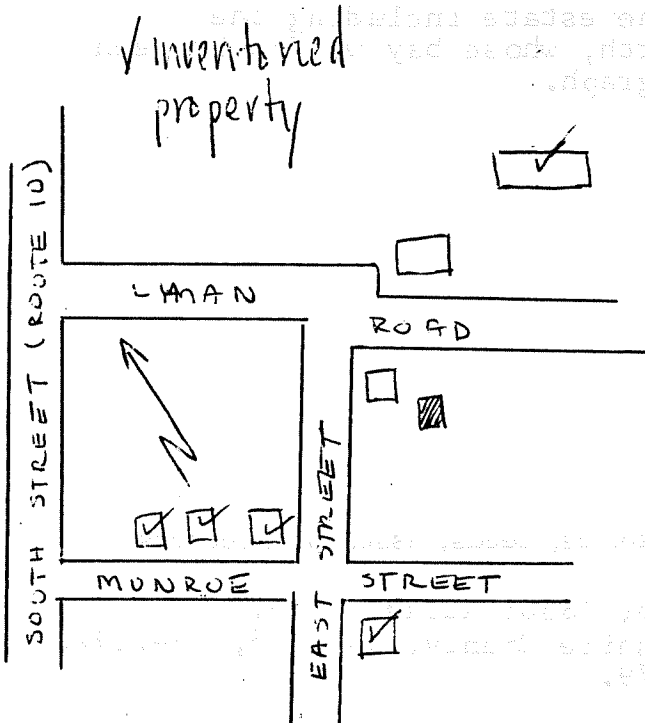 √ inventoried
property
SOUTH STREET (ROUTE 10)
LYMAN
ROAD
EAST STREET
MUNROE STREET